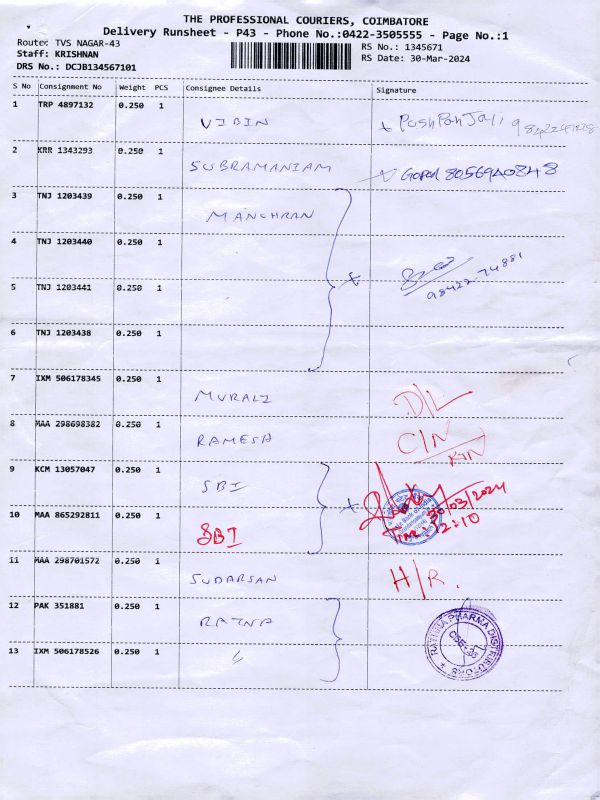 THE PROFESSIONAL COURIERS, COIMBATORE
Delivery Runsheet - P43 - Phone No.:0422-3505555 - Page No.:1
Route: TVS NAGAR-43
Staff: KRISHNAN
DRS No.: DCJB134567101
RS No.: 1345671
RS Date: 30-Mar-2024
S No Consignment No Weight PCS Consignee Details Signature
1 TRP 4897132 0.250 1 VIBIN
2 KRR 1343293 0.250 1 SUBRAMANIAM GOPAL 8056940848
3 TNJ 1203439 0.250 1 MANOHRAN
4 TNJ 1203440 0.250 1
5 TNJ 1203441 0.250 1 98422-74881
6 TNJ 1203438 0.250 1
7 IXM 506178345 0.250 1 MURALI D/L
8 MAA 298698382 0.250 1 RAMESH C/N
9 KCM 13057047 0.250 1 SBI 30/03/2024
10 MAA 865292811 0.250 1 SBI Time: 12:10
11 MAA 298701572 0.250 1 SUDARSAN H/R.
12 PAK 351881 0.250 1 RATNA PHARMA DISTRIBUTORS
13 IXM 506178526 0.250 1 "